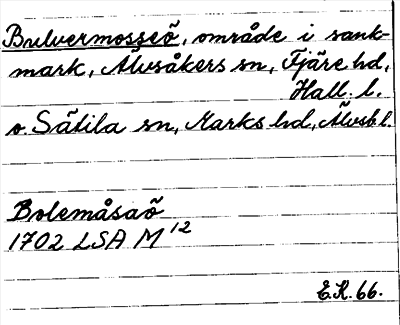 Bulvermosseö, område i sank-
mark, Älvsåkers sn, Fjäre hd,
Hall. l.
o. Sätila sn, Marks hd, Älvsb l.
Bolemåsaö
1702 LSA M 12
E.K. 66.